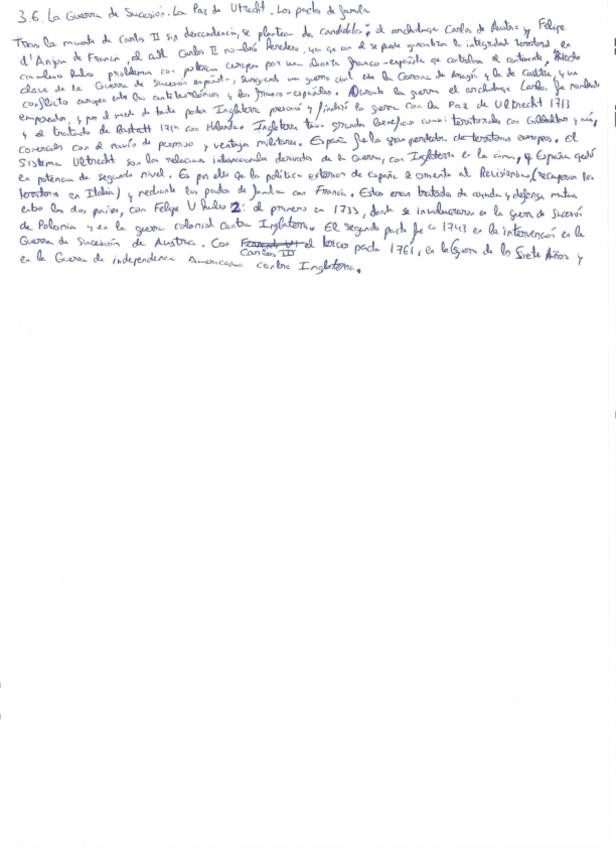 3.6. La Guerra de Sucesión. La Paz de Utrecht. Los pactos de familia
Tras la muerte de Carlos II sin descendencia, se plantean dos candidatos: el archiduque Carlos de Austria y Felipe
d'Anjou de Francia, el cual Carlos II nombró heredero, ya que con él se puede garantizar la integridad territorial, en
cambio hubo problemas con potencias europeas por una alianza franco-española que controlara el continente,
clave de la Guerra de Sucesión española, surgiendo una guerra civil entre la Corona de Aragón y la de Castilla, y un
conflicto europeo entre los antiborbónicos y los franco-españoles. Durante la guerra el archiduque Carlos fue nombrado
emperador, y por el miedo de tanto poder Inglaterra presionó y finalizó la guerra con la Paz de Utrecht 1713
y el tratado de Rastatt 1714 con Holanda. Inglaterra tuvo grandes beneficios territoriales con Gibraltar y
comerciales con el navío de permiso y ventajas militares. España fue la gran perdedora de territorios europeos. El
Sistema Utrecht son las relaciones internacionales derivadas de la Guerra, con Inglaterra en la cima, y España quedó
en potencia de segundo nivel. Es por ello que la política exterior de España se orienta al Revisionismo (recuperar los
territorios en Italia) y mediante los pactos de familia con Francia. Estos eran tratados de ayuda y defensa mutua
entre los dos países, con Felipe V hubo 2: el primero en 1733, donde se involucraron en la guerra de Sucesión
de Polonia y en la guerra colonial contra Inglaterra. El segundo pacto fue en 1743 en la intervención en la
Guerra de Sucesión de Austria. Con Carlos III el tercer pacto 1761, en la Guerra de los Siete Años y
en la Guerra de independencia Americana contra Inglaterra.